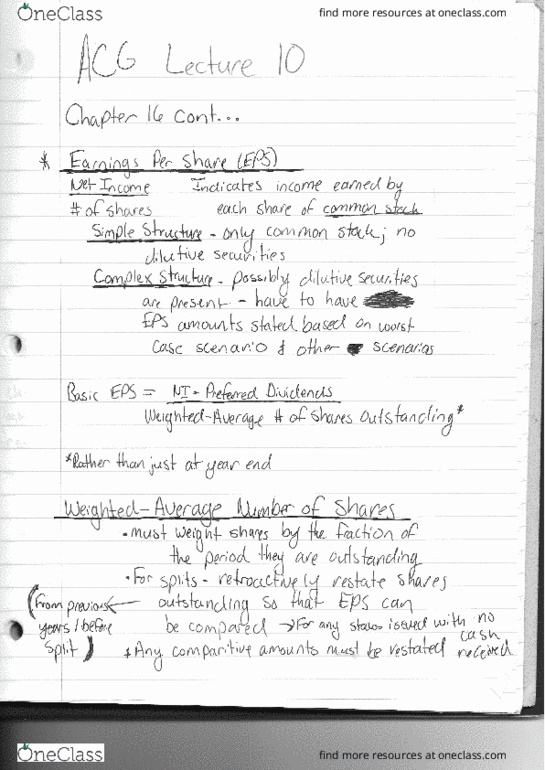 OneClass find more resources at oneclass.com
ACG Lecture 10
Chapter 16 cont...
* Earnings Per Share (EPS)
Net Income Indicates income earned by
# of shares each share of common stock
Simple Structure - only common stock; no
dilutive securities
Complex Structure - possibly dilutive securities
are present - have to have
EPS amounts stated based on worst
case scenario & other scenarios
Basic EPS = NI - Preferred Dividends
Weighted-Average # of shares outstanding*
*Rather than just at year end
Weighted-Average Number of Shares
• must weight shares by the fraction of
the period they are outstanding
• For splits - retroactively restate shares
(from previous ← outstanding so that EPS can
years/before be compared → For any issued with no
split) * Any comparitive amounts must be restated cash received
OneClass find more resources at oneclass.com